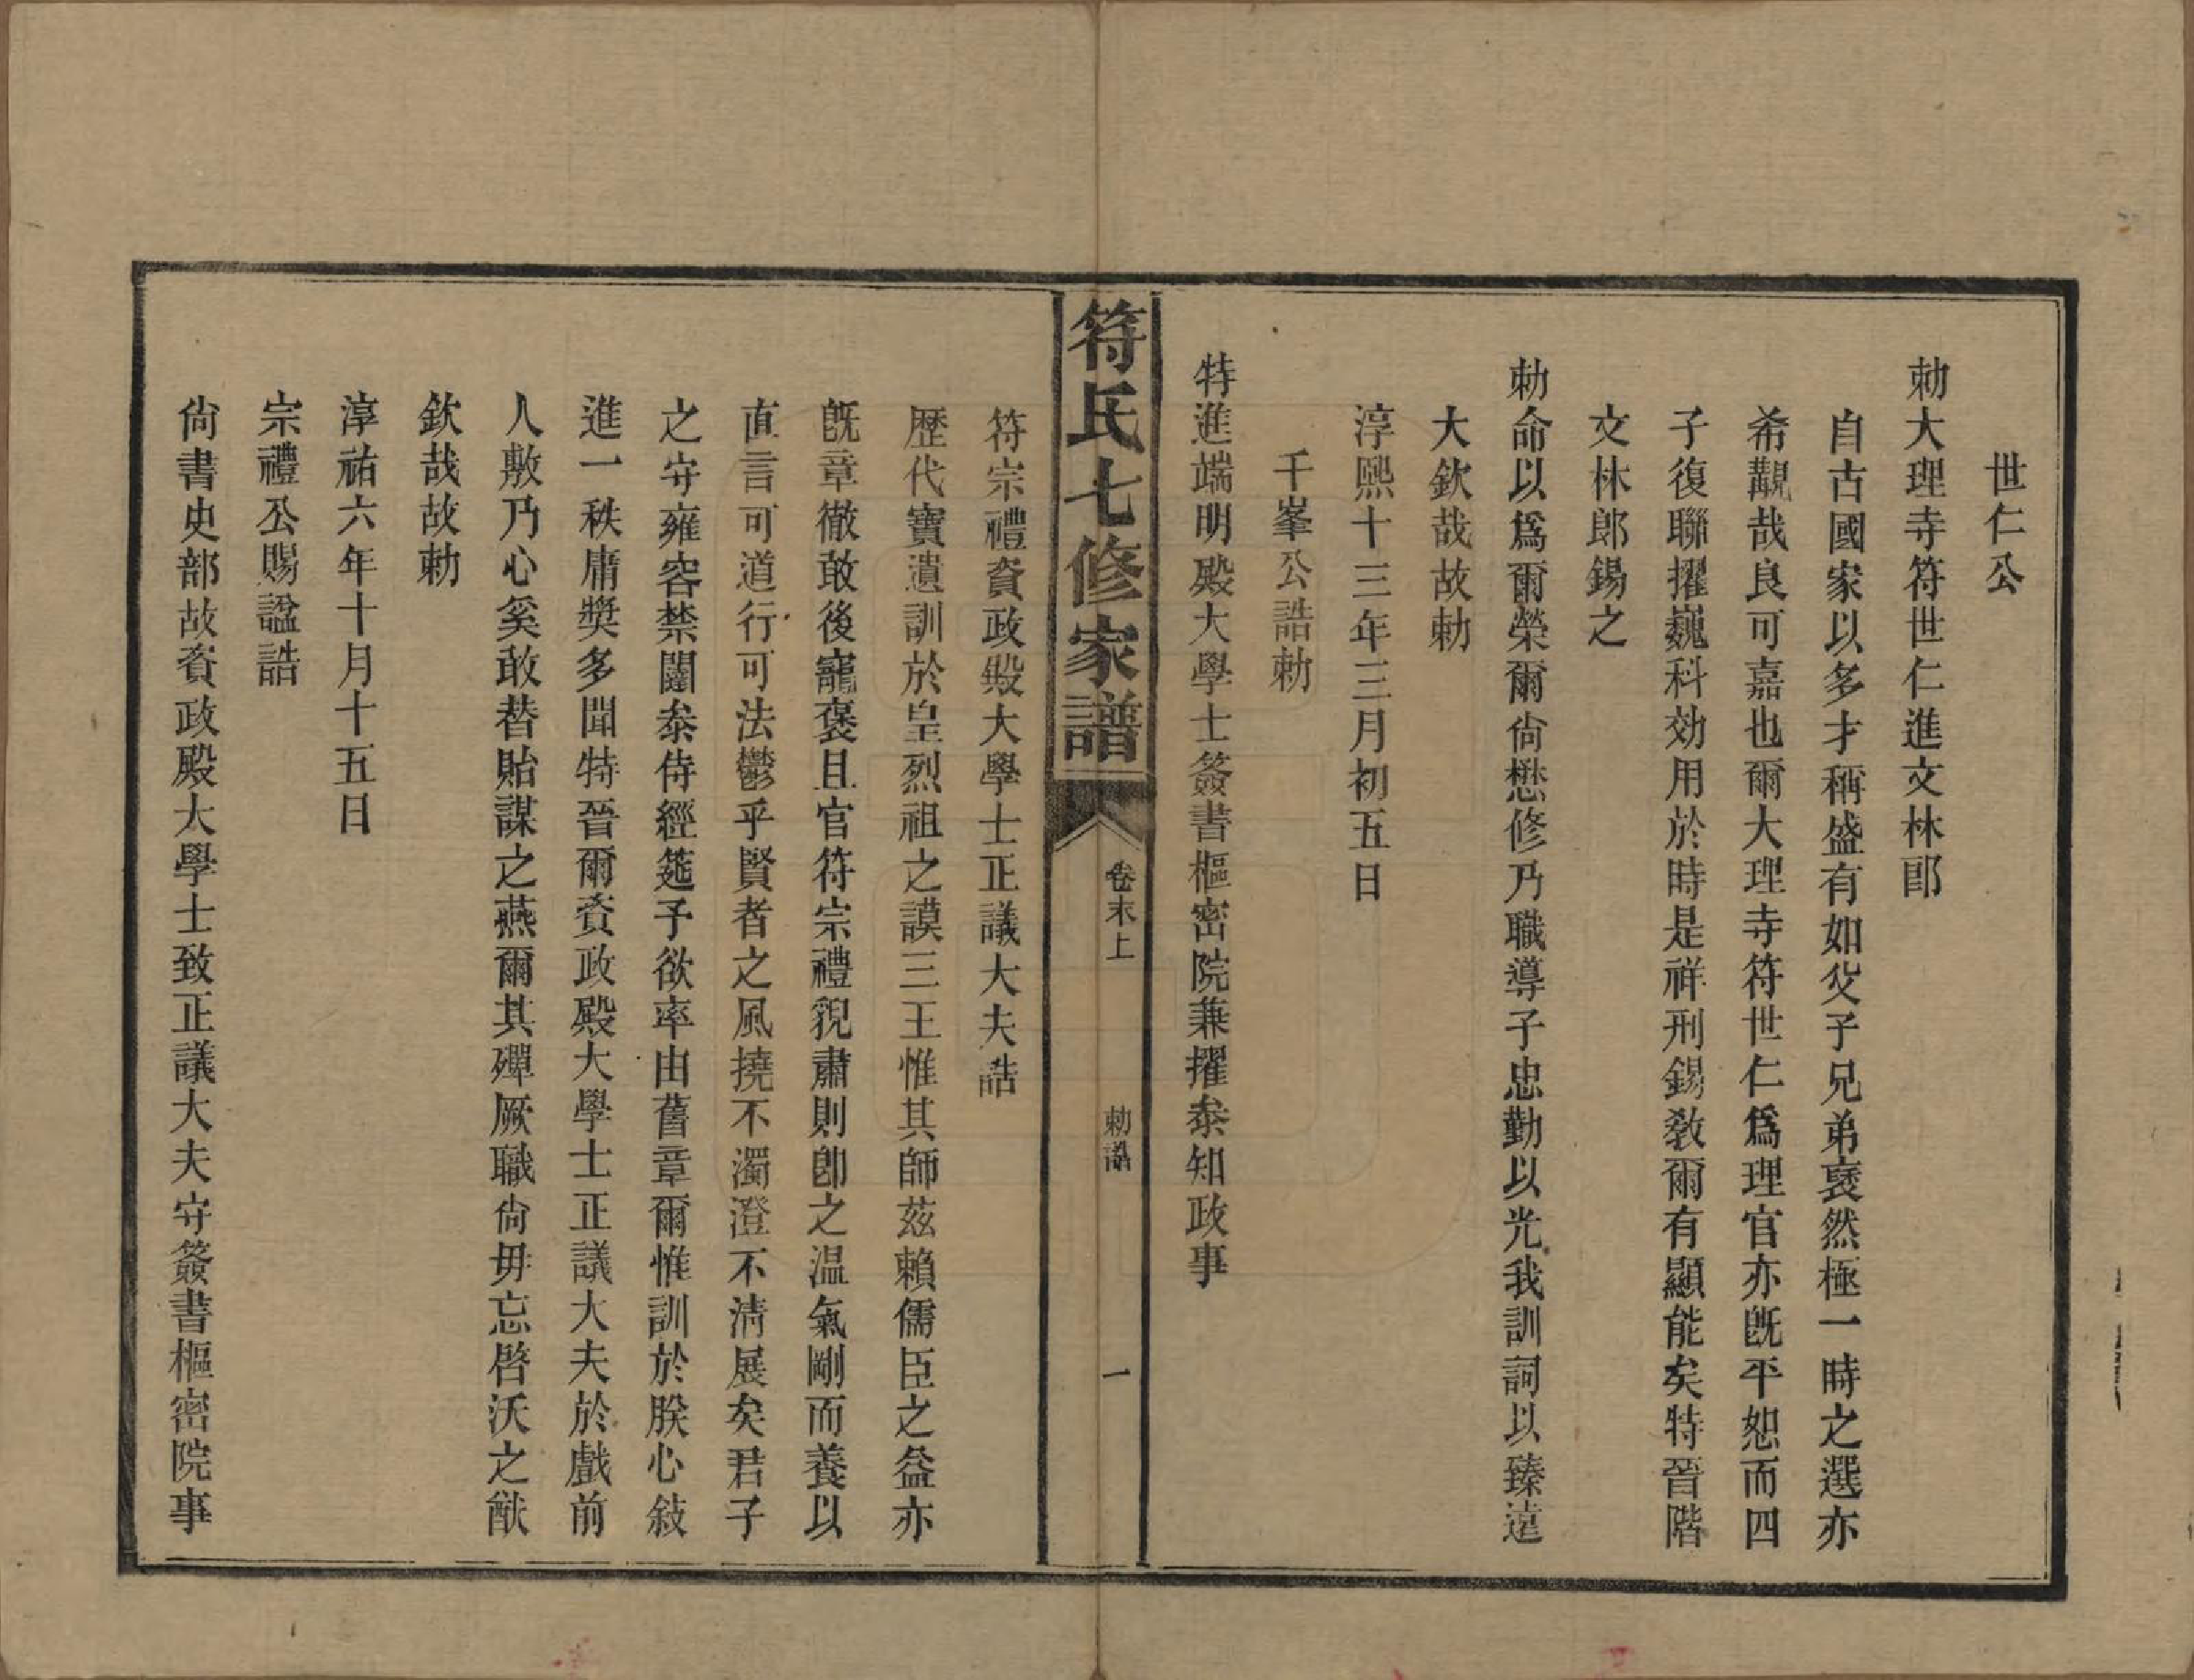 世仁公
勅大理寺符世仁進文林郎
自古國家以多才稱盛有如父子兄弟裒然極一時之選亦
希覯哉良可嘉也爾大理寺符世仁爲理官亦既平恕而四
子復聯擢巍科効用於時是祥刑錫教爾有顯能矣特晉階
文林郎錫之
勅命以爲爾榮爾尙懋修乃職導子忠勤以光我訓詞以臻遠
大欽哉故勅
淳熙十三年三月初五日
千峯公誥勅
特進端明殿大學士簽書樞密院兼擢叅知政事
符氏七修家譜
卷末上
勅誥
一
符宗禮資政殿大學士正議大夫誥
歷代寶遺訓於皇烈祖之謨三王惟其師茲賴儒臣之益亦
既章徹敢後寵褒且官符宗禮貌肅則卽之温氣剛而養以
直言可道行可法鬱乎賢者之風撓不濁澄不淸展矣君子
之守雍容禁闥叅侍經筵予欲率由舊章爾惟訓於朕心敍
進一秩庸奬多聞特晉爾資政殿大學士正議大夫於戲前
人敷乃心奚敢替貽謀之燕爾其殫厥職尙毋忘啓沃之猷
欽哉故勅
淳祐六年十月十五日
宗禮公賜諡誥
尙書史部故資政殿大學士致正議大夫守簽書樞密院事